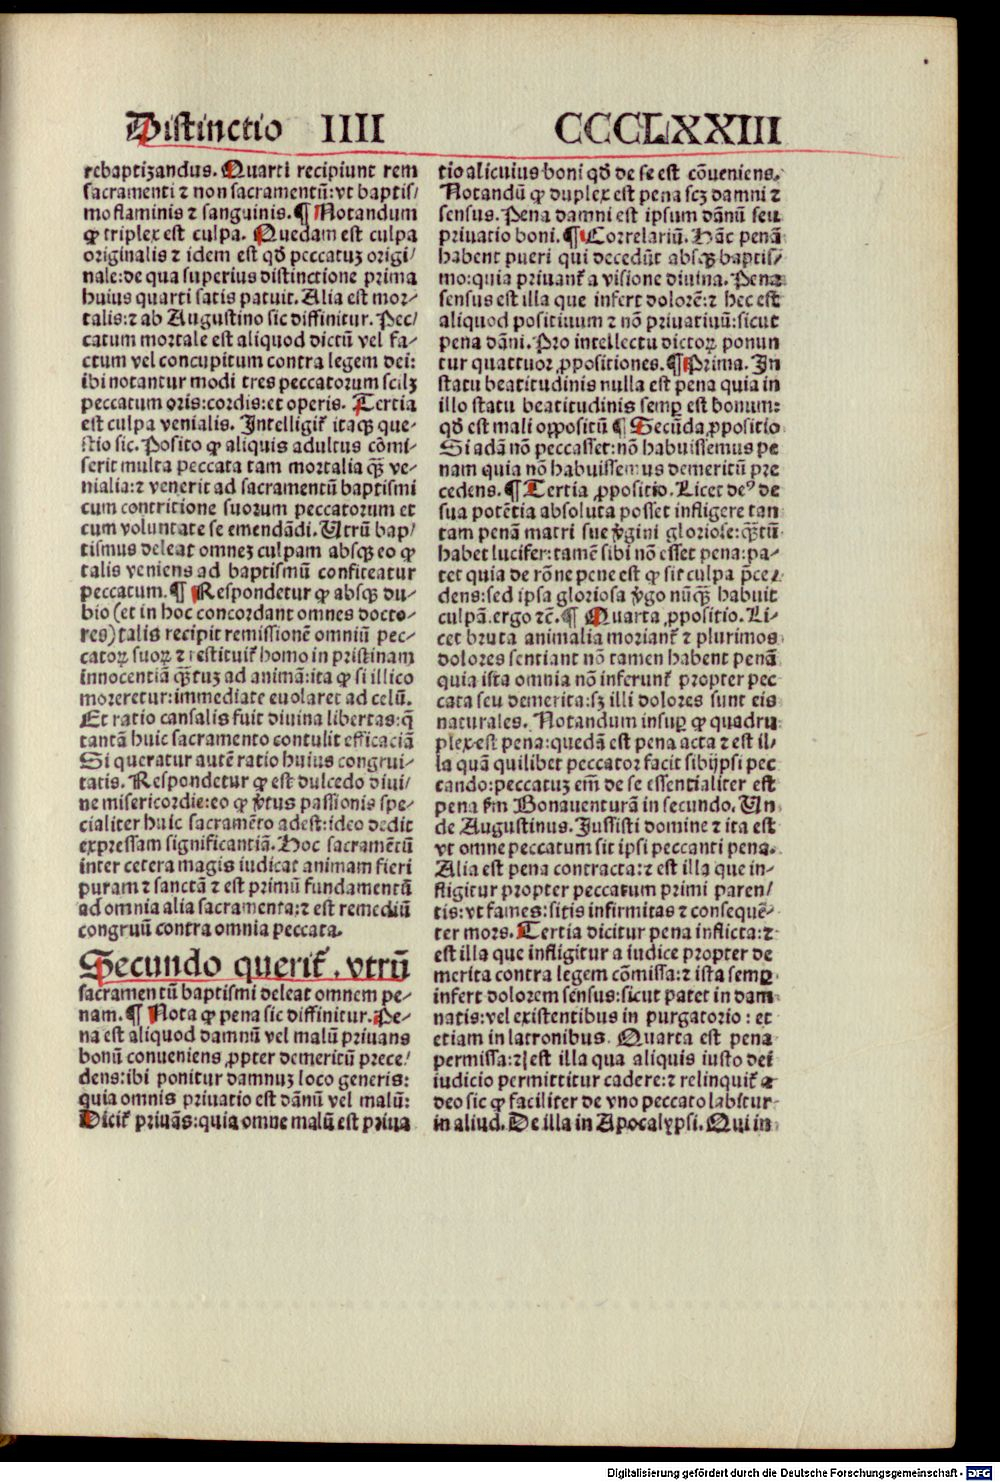 Distinctio IIII CCCCLXXIII
rebaptizandus. Quarti recipiunt rem
sacramenti ⁊ non sacramentū: vt baptis/
mo flaminis ⁊ sanguinis. ¶ Notandum
ꝙ triplex est culpa. Quedam est culpa
originalis ⁊ idem est qd̄ peccatuꝫ origi/
nale: de qua superius distinctione prima
huius quarti satis patuit. Alia est mor/
talis: ⁊ ab Augustino sic diffinitur. Pec/
catum mortale est aliquod dictū vel fa/
ctum vel concupitum contra legem dei:
ibi notantur modi tres peccatorum scilꝫ
peccatum oris: cordis: et operis. Tertia
est culpa venialis. Intelligit᷑ itaqꝫ que/
stio sic. Posito ꝙ aliquis adultus cōmi/
serit multa peccata tam mortalia q̄ꝫ ve/
nialia: ⁊ venerit ad sacramentū baptismi
cum contritione suorum peccatorum et
cum voluntate se emendādi. Utrū bap/
tismus deleat omneꝫ culpam absqꝫ eo ꝙ
talis veniens ad baptismū confiteatur
peccatum. ¶ Respondetur ꝙ absqꝫ du/
bio (et in hoc concordant omnes docto/
res) talis recipit remissionē omniū pec/
catoꝝ suoꝝ ⁊ restituit᷑ homo in pristinam
innocentiā q̄ꝫtuꝫ ad animā: ita ꝙ si illico
moreretur: immediate euolaret ad celū.
Et ratio cansalis fuit diuina libertas: q̄
tantā huic sacramento contulit efficaciā
Si queratur autē ratio huius congrui/
tatis. Respondetur ꝙ est dulcedo diui/
ne misericordie: eo ꝙ v̄tus passionis spe/
cialiter huic sacramēto adest: ideo dedit
expressam significantiā. Hoc sacramētū
inter cetera magis iudicat animam fieri
puram ⁊ sanctā ⁊ est primū fundamentū
ad omnia alia sacramenta: ⁊ est remediū
congruū contra omnia peccata.
Secundo querit᷑. vtrū
sacramentū baptismi deleat omnem pe/
nam. ¶ Nota ꝙ pena sic diffinitur. Pe/
na est aliquod damnū vel malū priuans
bonū conueniens ꝓpter demeritū prece/
dens: ibi ponitur damnuꝫ loco generis:
quia omnis priuatio est dānū vel malū:
Dicit᷑ priuās: quia omne malū est priua
tio alicuius boni qd̄ de se est cōueniens.
Notandū ꝙ duplex est pena scꝫ damni ⁊
sensus. Pena damni est ipsum dānū seu
priuatio boni. ¶ Correlariū. Hāc penā
habent pueri qui decedūt absqꝫ baptis/
mo: quia priuant᷑ a visione diuina. Pena
sensus est illa que infert dolorē: ⁊ hec est
aliquod positiuum ⁊ nō priuatiuū: sicut
pena dāni. Pro intellectu dictoꝝ ponun
tur quattuor ꝓpositiones. ¶ Prima. In
statu beatitudinis nulla est pena quia in
illo statu beatitudinis semꝑ est bonum:
qd̄ est mali oppositū ¶ Secūda ꝓpositio
Si adā nō peccasset: nō habuissemus pe
nam quia nō habuissemus demeritū pre
cedens. ¶ Tertia ꝓpositio. Licet deꝰ de
sua potētia absoluta posset infligere tan
tam penā matri sue v̄gini gloriose: q̄ꝫtū
habet lucifer: tamē sibi nō esset pena: pa/
tet quia de rōne pene est ꝙ sit culpa p̄ce/
dens: sed ipsa gloriosa v̄go nūq̄ꝫ habuit
culpā. ergo ⁊c̄. ¶ Quarta ꝓpositio. Li/
cet bruta animalia moriant᷑ ⁊ plurimos
dolores sentiant nō tamen habent penā
quia ista omnia nō inferunt᷑ propter pec
cata seu demerita: sꝫ illi dolores sunt eis
naturales. Notandum insuꝑ ꝙ quadru
plex est pena: quedā est pena acta ⁊ est il/
la quā quilibet peccator facit sibijpsi pec
cando: peccatuꝫ em̄ de se essentialiter est
pena ẜm Bonauenturā in secundo. Un
de Augustinus. Jussisti domine ⁊ ita est
vt omne peccatum sit ipsi peccanti pena.
Alia est pena contracta: ⁊ est illa que in/
fligitur propter peccatum primi paren/
tis: vt fames: sitis infirmitas ⁊ consequē/
ter mors. Tertia dicitur pena inflicta: ⁊
est illa que infligitur a iudice propter de
merita contra legem cōmissa: ⁊ ista semꝑ
infert dolorem sensus: sicut patet in dam
natis: vel existentibus in purgatorio: et
etiam in latronibus. Quarta est pena
permissa: ⁊ est illa qua aliquis iusto dei
iudicio permittitur cadere: ⁊ relinquit᷑ a
deo sic ꝙ faciliter de vno peccato labitur
in aliud. De illa in Apocalypsi. Qui in
Digitalisierung gefördert durch die Deutsche Forschungsgemeinschaft - DFG